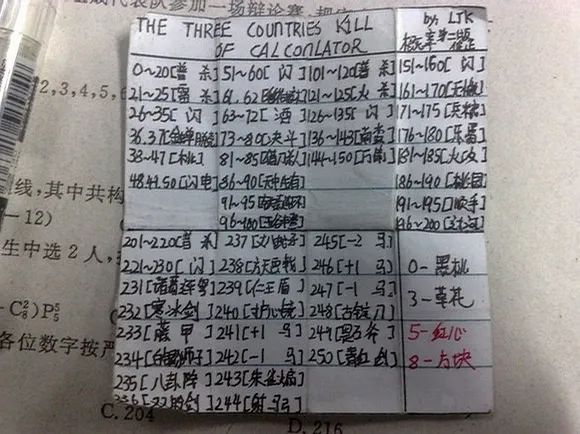 THE THREE COUNTRIES KILL
OF CALCONLATOR
by: LJK
概率第二版
修正
0~20[普 杀] 51~60[ 闪 ] 101~120[普 杀] 151~160[ 闪 ]
21~25[雷 杀] 61,62 121~125[火 杀] 161~170[无懈]
26~35[ 闪 ] 63~72[ 酒 ] 126~135[ 闪 ] 171~175[兵粮]
36,37 73~80[决斗] 136~143[南蛮] 176~180[乐蜀]
38~47[桃] 81~85[借刀杀人] 144~150[万箭] 181~185[火攻]
48,49,50[闪电] 86~90[无中生有] 186~190[桃园]
91~95 191~195[顺手]
96~100 196~200
201~220[普 杀] 237[丈八蛇矛] 245[-2 马]
221~230[ 闪 ] 238[方天画戟] 246[+1 马]
231[诸葛连弩] 239[仁王盾] 247[-1 马]
232[寒冰剑] 240[护心镜] 248[古锭刀]
233[藤 甲] 241[+1 马] 249[贯石斧]
234[白银狮子] 242[-1 马] 250[青釭剑]
235[八卦阵] 243[朱雀扇]
236[双股剑] 244[射马弓]
0-黑桃
3-草花
5-红心
8-方块
代表队参加一场辩论赛
2,3,4,5,6
线,其中共构
-12)
生中选2人,
-C₈²)P₅⁵
各位数字按严
C. 204
D. 216